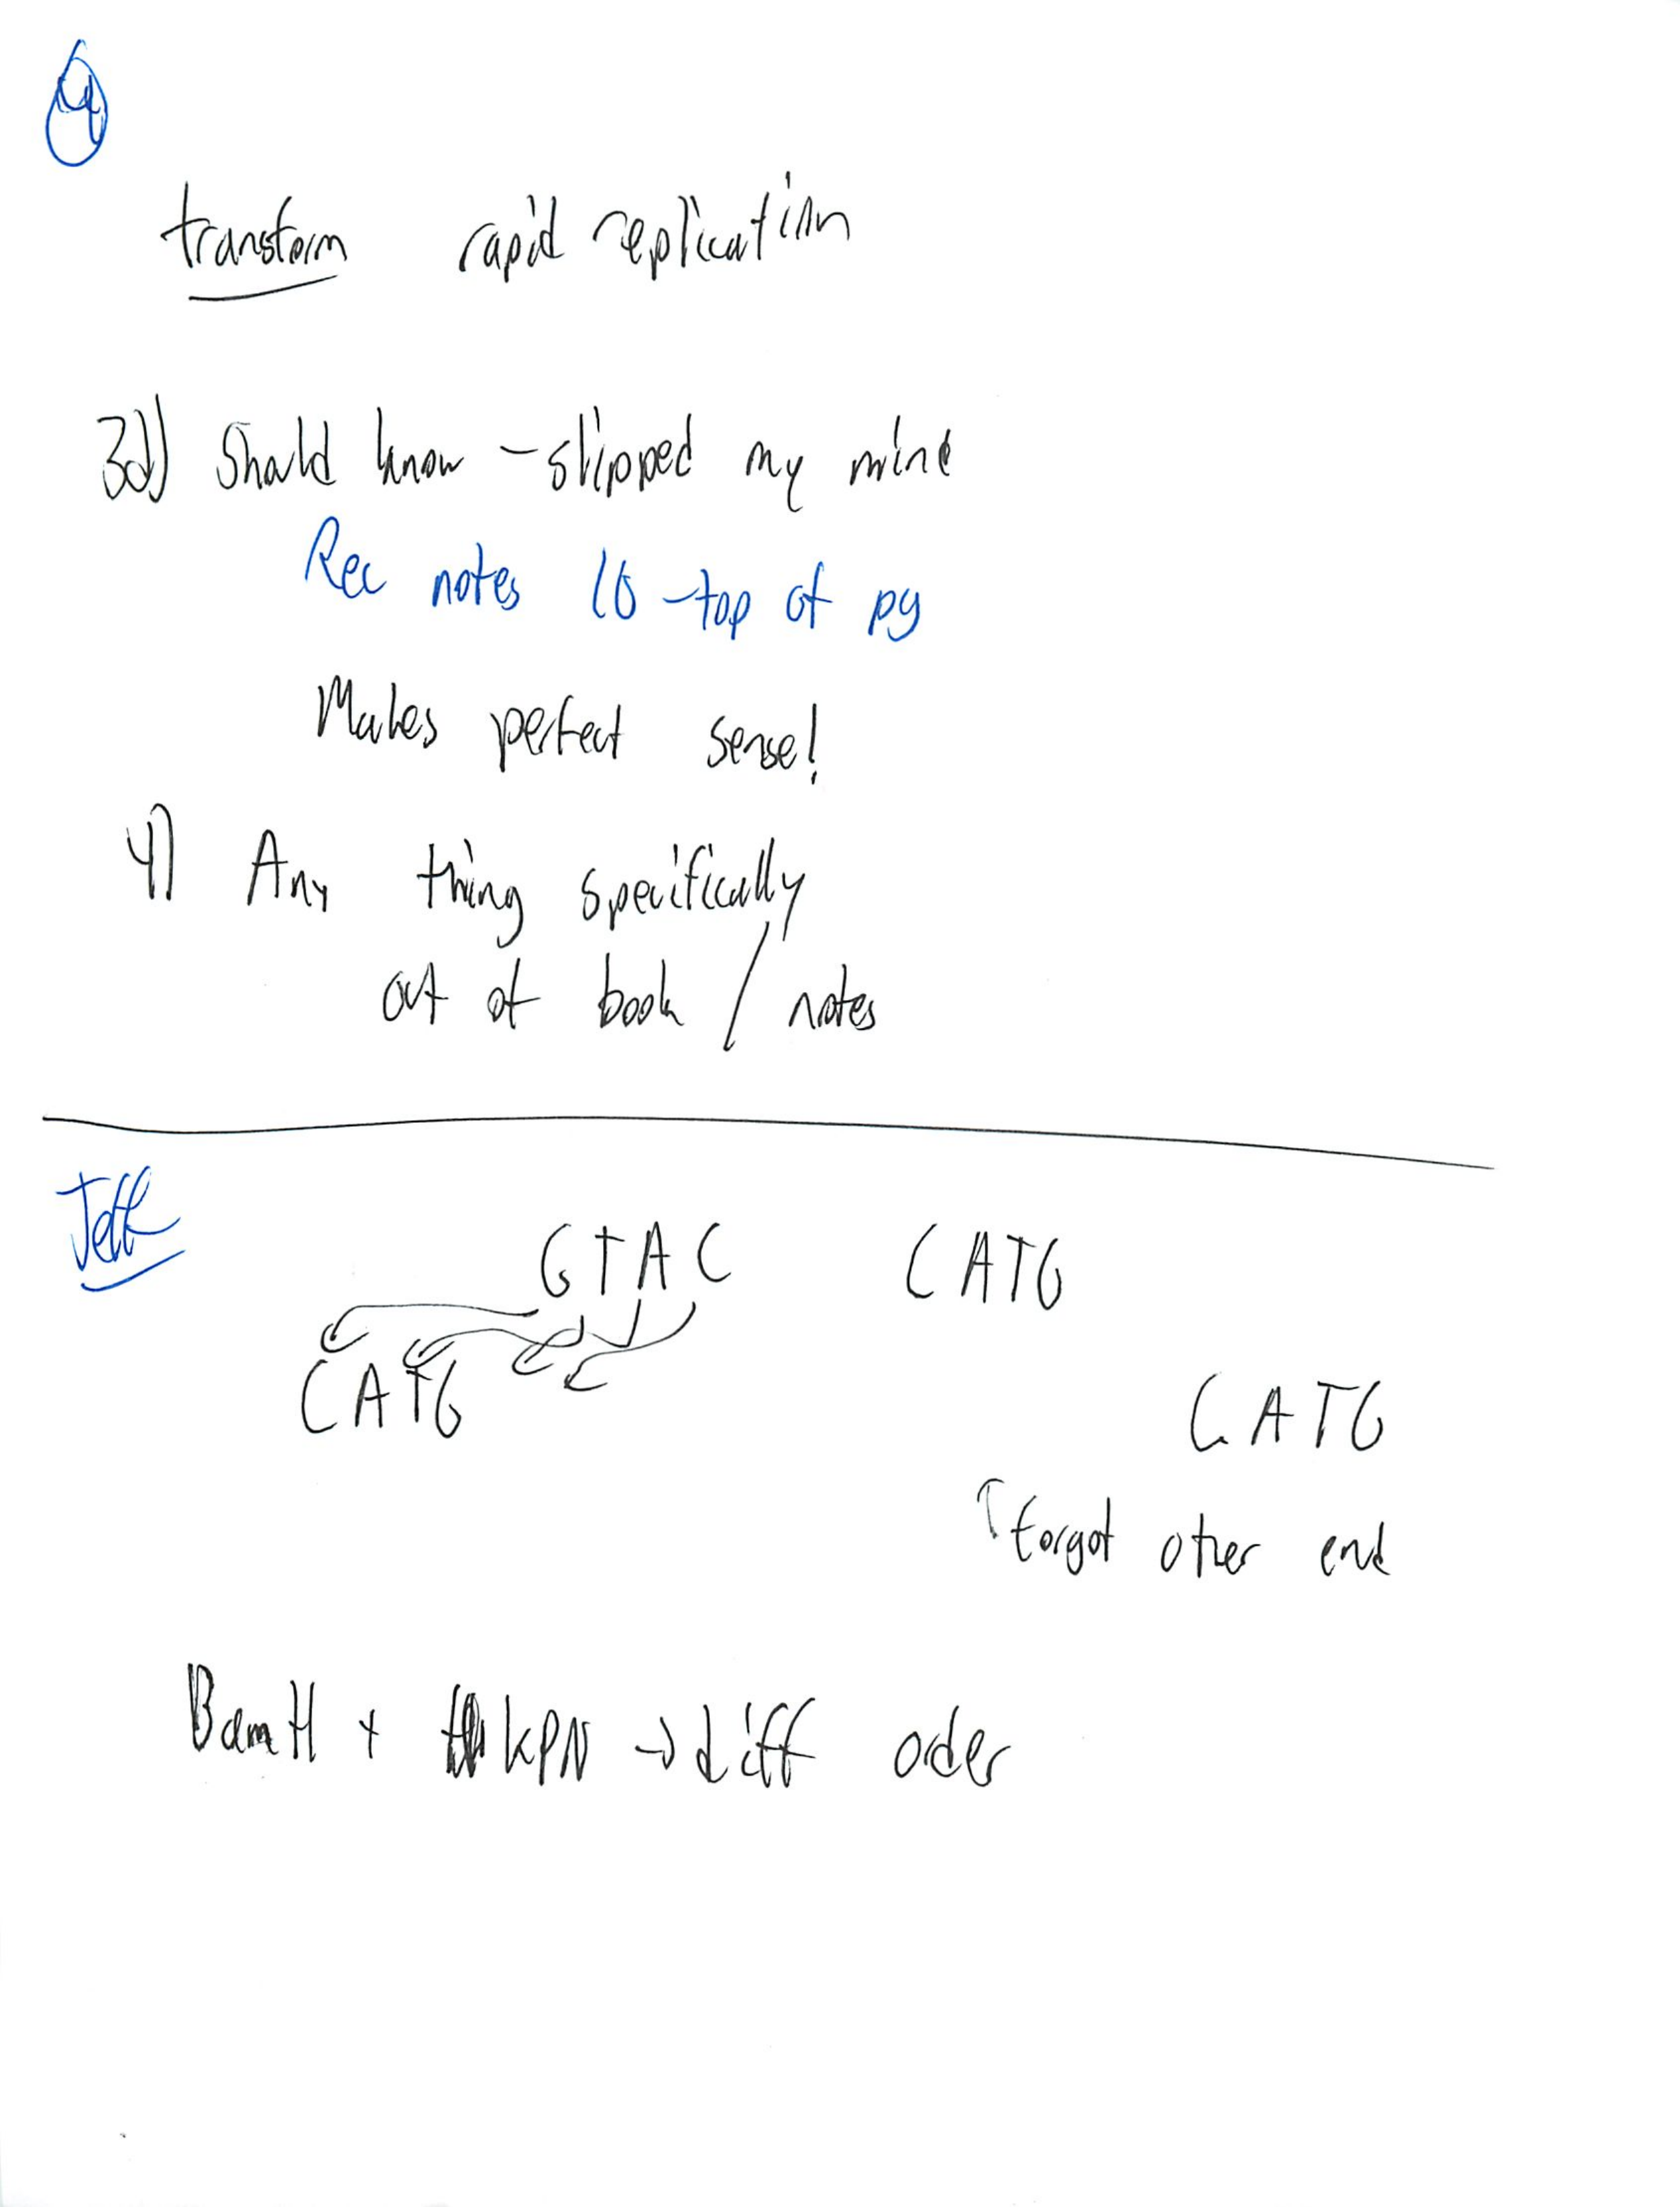 4
transform rapid replication
3d) Should know - slipped my mind
Rec notes 16 - top of pg
Makes perfect sense!
4) Any thing specifically
out of book / notes
Jeff
GTAC CATG
CATG CATG
forgot other end
BamH + KPN → diff order